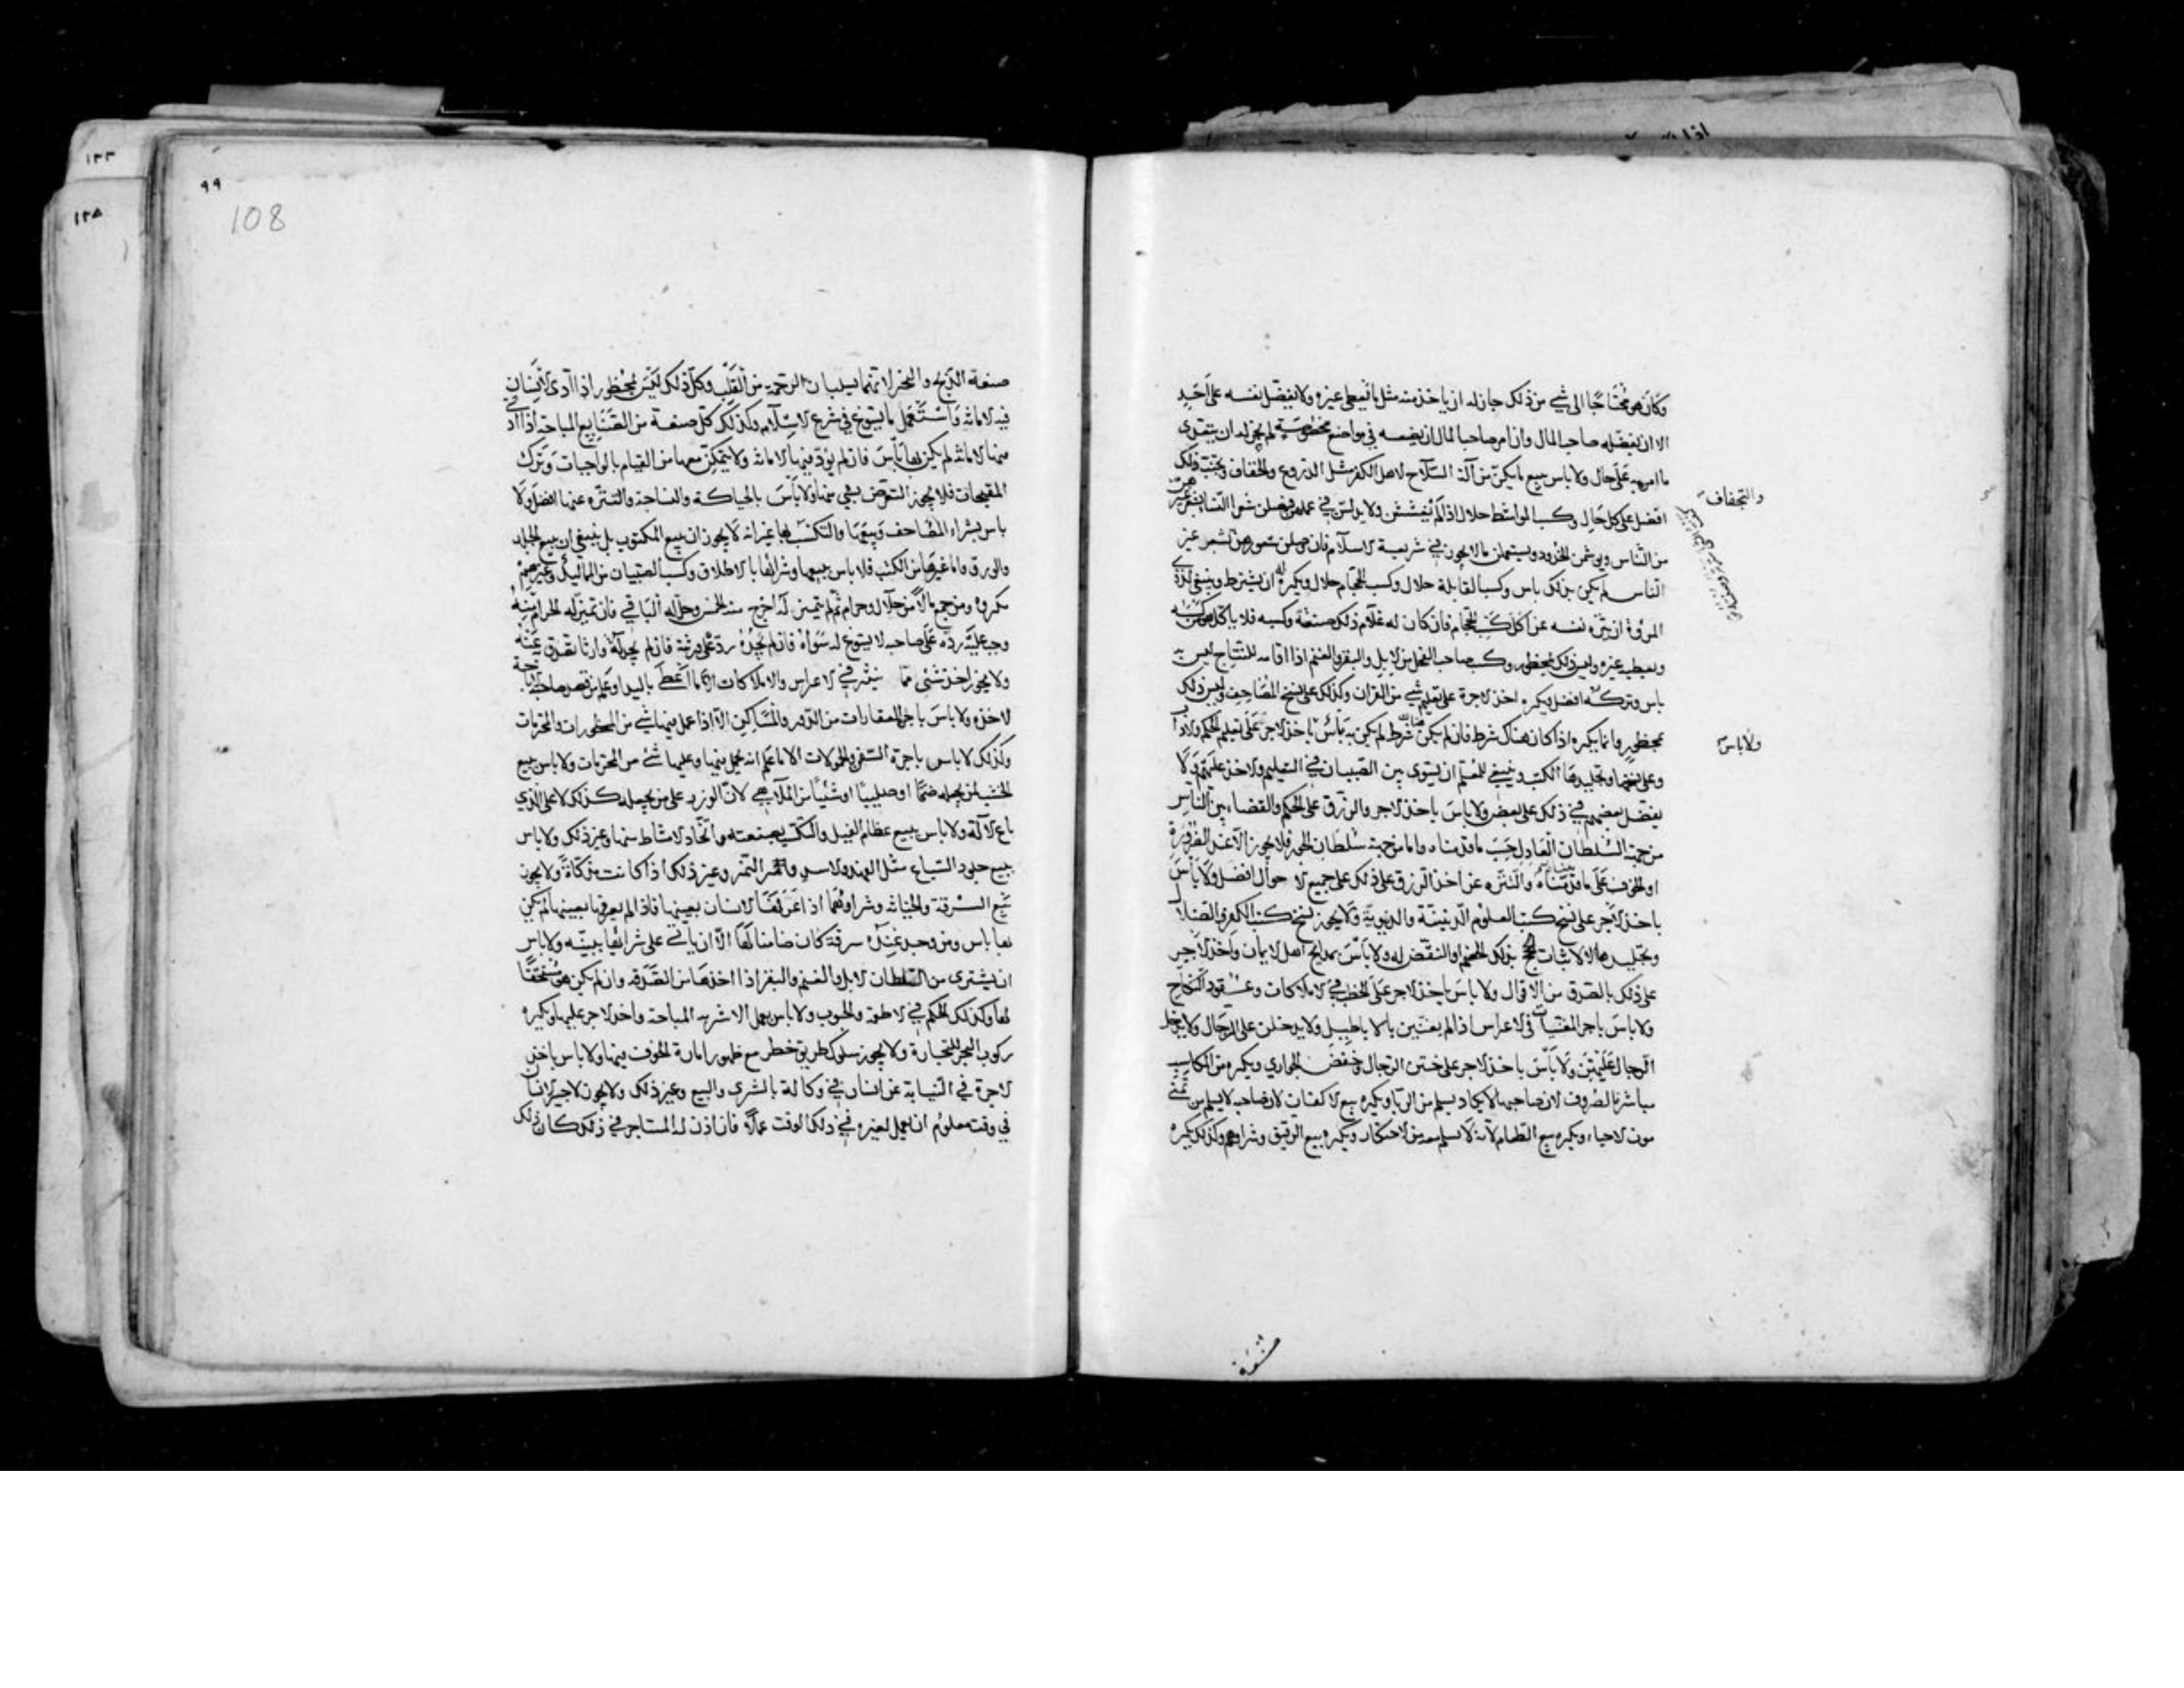 وكان هو محتاجا الى شي من ذلك جاز له ان ياخذ منه مثل ما يعطى غيره ولا يفضل نفسه على احد
الا ان يفضله صاحب المال وان امر صاحب المال ان يضعه في مواضع مخصوصة لم يجز له ان يتعدى
ما امر به على حال ولا باس ببيع ما يكن من آلة السلاح لاهل الكفر مثل الدروع والخفاف وتجنب ذلك
والتجفاف
افضل على كل حال وكسب المواشط حلال اذا لم يغششن ولا يدلسن في عملهن فيصلن شعر النساء بشعر غيرهن
من الناس ويوشمن الخدود ويستعملن ما لا يجوز في شريعة الاسلام فان وصلن شعورهن بشعر غير
الناس لم يكن بذلك باس وكسب القابلة حلال وكسب الحجام حلال ويكره له ان يشترط وينبغي لذوي
المروة ان ينزه نفسه عن اكل كسب الحجام فان كان له غلام ذلك صنعته وكسبه فلا ياكل من كسبه
ويعطيه غيره وليس ذلك بمحظور وكسب صاحب الفحل من الابل والبقر والغنم اذا اقامه للنتاج ليس به
باس وتركه افضل ويكره اخذ الاجرة على تعليم شي من القران وكذلك على نسخ المصاحف وليس ذلك
بمحظور وانما يكره اذا كان هناك شرط فان لم يكن هناك شرط لم يكن به باس ولا باس باخذ الاجر على تعليم الحكم والاداب
ولا باس
وعلى نسخها وتجليدها الكتب وينبغي للمعلم ان يسوى بين الصبيان في التعليم والاخذ عليهم ولا
يفضل بعضهم في ذلك على بعض ولا باس باخذ الاجر والرزق على الحكم والقضاء بين الناس
من جهة السلطان العادل حسب ما قدمناه واما من جهة سلطان الجور فلا يجوز الا عند الضرورة
او الخوف على ما قدمناه والتنزه عن اخذ الرزق على ذلك على جميع الاحوال افضل ولا باس
باخذ الاجر على نسخ كتب العلوم الدينية والدنيوية ولا يجوز نسخ كتب الكفر والضلال
وتجليدها الا لاثبات الحجج بذلك على الخصم او النقض له ولا باس بمدايح اهل الايمان واخذ الاجر
على ذلك بالصدق من الاقوال ولا باس باخذ الاجر على الخطب في الاملاكات وعقود النكاح
ولا باس باجر المغنيات في الاعراس اذا لم يغنين بالاباطيل ولا يدخلن على الرجال ولا يدخل
الرجال عليهن ولا باس باخذ الاجر على ختن الرجال وخفض الجواري ويكره من المكاسب
مباشرة الصروف لان صاحبها لا يكاد يسلم من الربا ويكره بيع الاكفان لان صاحبه لا يسلم من تمنى
موت الاحياء ويكره بيع الطعام لانه لا يسلم معه من الاحتكار ويكره بيع الرقيق وشراوهم وكذلك يكره
صنعة
٩٩
108
صنعة الذبح والنحر لانهما يسلبان الرحمة من القلب وكل ذلك ليس بمحظور اذا ادى الانسان
فيه الامانة واستعمل ما يسوغ في شرع الاسلام وكذلك كل صنعة من الصنايع المباحة اذا ادى
فيها الامانة لم يكن بها باس فان لم يود فيها الامانة ولا يتمكن معها من القيام بالواجبات وترك
المقبحات فلا يجوز التعرض بشي منها ولا باس بالحياكة والنساجة والتنزه عنها افضل ولا
باس بشراء المصاحف وبيعها والتكسب بها غير انه لا يجوز ان يبيع المكتوب بل ينبغي ان يبيع الجلد
والورق واما غيرها من الكتب فلا باس ببيعها وشرائها بالاطلاق وكسب الصبيان من المماليك وغيرهم
مكروه ومن جمع مالا من حلال وحرام ثم لم يتميز له اخرج منه الخمس وحل له الباقي فان تميز له الحرام منه
وجب عليه رده على صاحبه لا يسوغ له سواه فان لم يجده رده على ورثته فان لم يجد له وارثا تصدق به عنه
ولا يجوز اخذ شي مما ينثر في الاعراس والاملاكات الا ما اعطى باليد او علم من قصد صاحبه اباحة
الاخذ ولا باس باجر العقارات من الدور والمساكن الا اذا عمل فيها شي من المحظورات والمحرمات
وكذلك لا باس باجرة السفن والحمولات الا ما علم انه يحمل فيها وعليها شي من المحرمات ولا باس ببيع
الخشب لمن يجعله صنما او صليبا او شيا من الملاهي لان الوزر على من يجعله كذلك لا على الذي
باع الالة ولا باس ببيع عظام الفيل والتكسب بصنعته واتخاذ الامشاط منها وغير ذلك ولا باس
ببيع جلود السباع مثل الفهد والاسد والنمر وغير ذلك اذا كانت مذكاة ولا يجوز
بيع السرقة والخيانة وشراوهما اذا عرفها الانسان بعينها فاذا لم يعرفها بعينها لم يكن
بها باس ومن وجد عنده سرقة كان ضامنا لها الا ان ياتي على شرائها ببينه ولا باس
ان يشترى من السلطان الابل والغنم والبقر اذا اخذها من الصدقه وان لم يكن هو مستحقا
لها وكذلك الحكم في الاطعمة والحبوب ولا باس بعمل الاشربه المباحة واخذ الاجر عليها ويكره
ركوب البحر للتجارة ولا يجوز سلوك طريق خطر مع ظهور امارة الخوف فيها ولا باس باخذ
الاجرة في النيابة عن انسان في وكالة بالشرى والبيع وغير ذلك ولا يجوز لاجير الانسان
في وقت معلوم ان يعمل لغيره في ذلك الوقت عملا فان اذن له المستاجر في ذلك كان ذلك
١٢٣
١٢٥